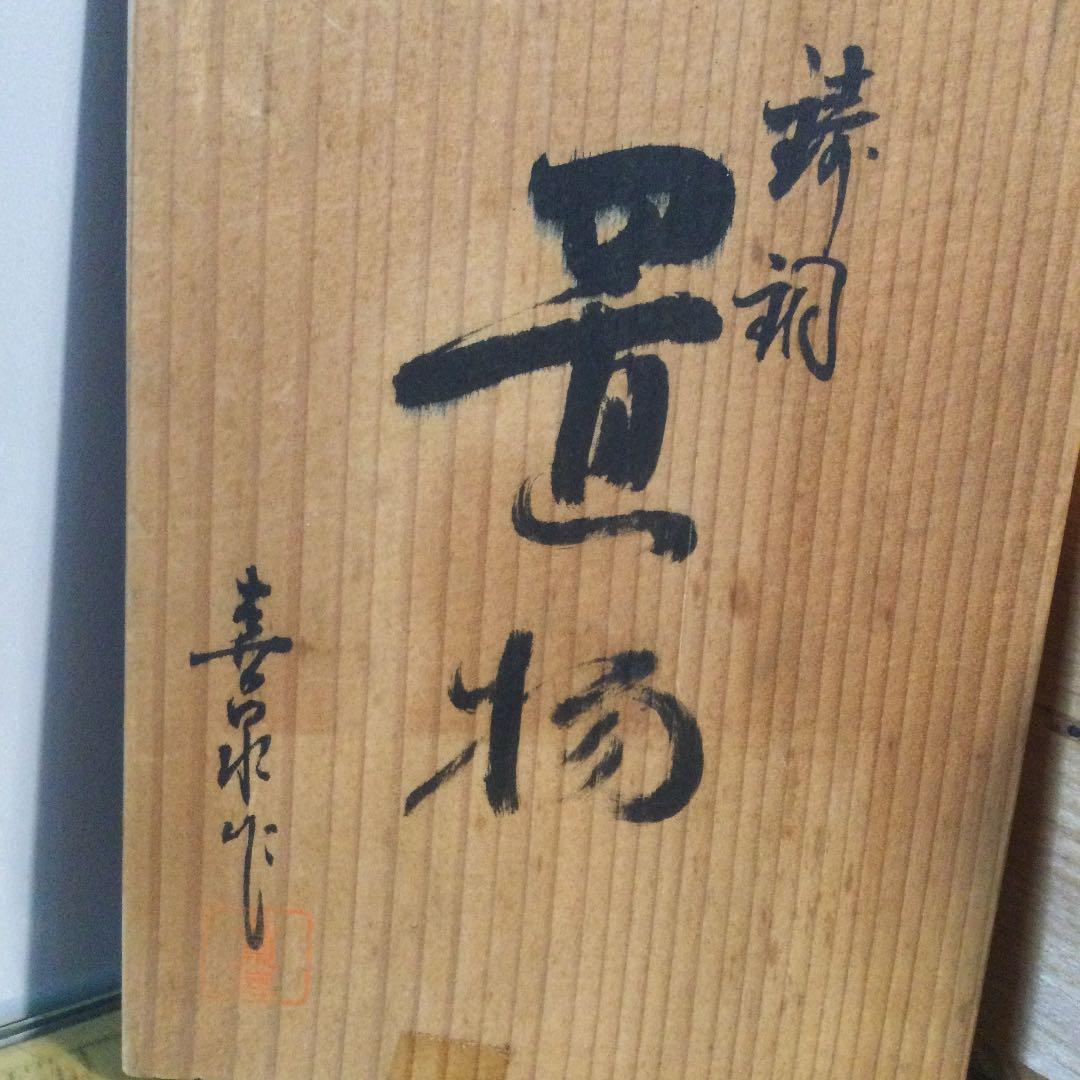 鋳銅
置物
喜泉作